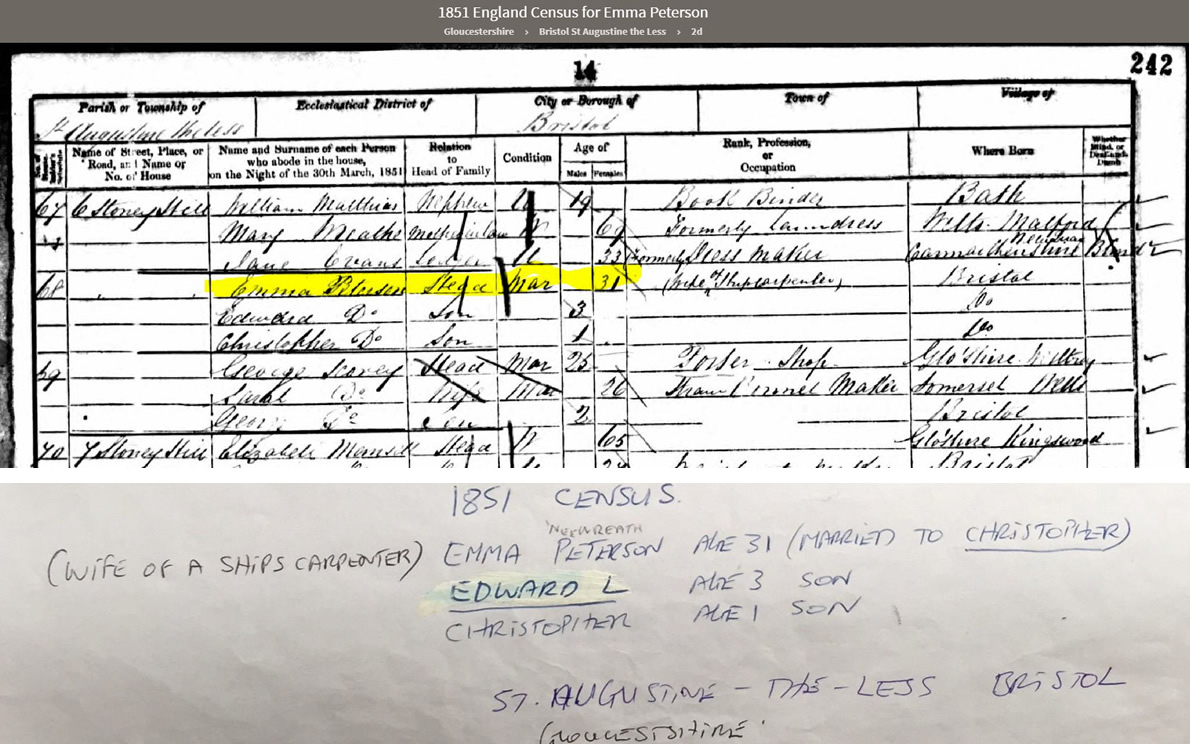 1851 England Census for Emma Peterson
Gloucestershire › Bristol St Augustine the Less › 2d
14
242
Parish or Township of Ecclesiastical District of City or Borough of Town of Village of
St Augustine the less Bristol
Name of Street, Place, or Road, and Name or No. of House
Name and Surname of each Person who abode in the house, on the Night of the 30th March, 1851
Relation to Head of Family
Condition
Age of
Males Females
Rank, Profession, or Occupation
Where Born
Whether Blind, or Deaf-and-Dumb
67 6 Stoney Hill William Matthias Nephew U 19 Book Binder Bath
Mary 69 Formerly Laundress Wilts
Jane Evans U 33 Formerly Dress Maker Carmarthenshire Blind
68 Emma Peterson Head Mar 31 (Wife of Shipcarpenter) Bristol
Edward Do Son 3 Do
Christopher Do Son 1 Do
69 George Head Mar 25 Porter Shop Glo'shire
Sarah Do Wife Mar 26 Bonnet Maker Somerset
George Do Son 2 Bristol
70 7 Stoney Hill Elizabeth Head 65 Glo'shire Kingswood
Bristol
1851 CENSUS.
'NEEWREATH
(WIFE OF A SHIPS CARPENTER) EMMA PETERSON AGE 31 (MARRIED TO CHRISTOPHER)
EDWARD L AGE 3 SON
CHRISTOPHER AGE 1 SON
ST. AUGUSTINE - THE - LESS BRISTOL